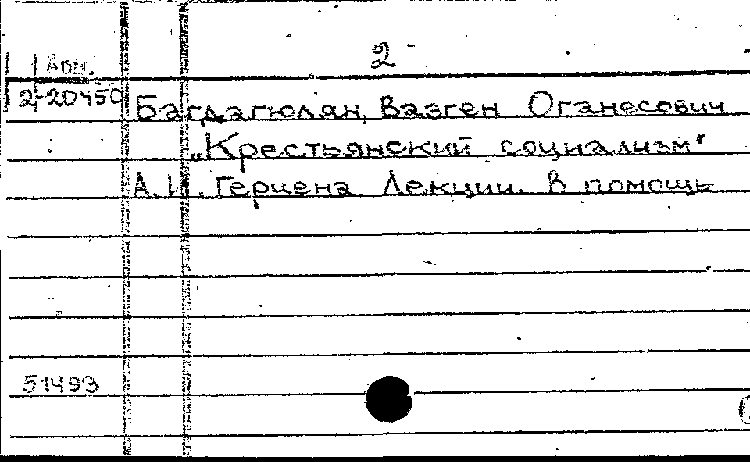 2
Арм.
2-20450
Багдагюлян, Вазген Оганесович
„Крестьянский социализм"
А.И. Герцена. Лекции. В помощь
51493